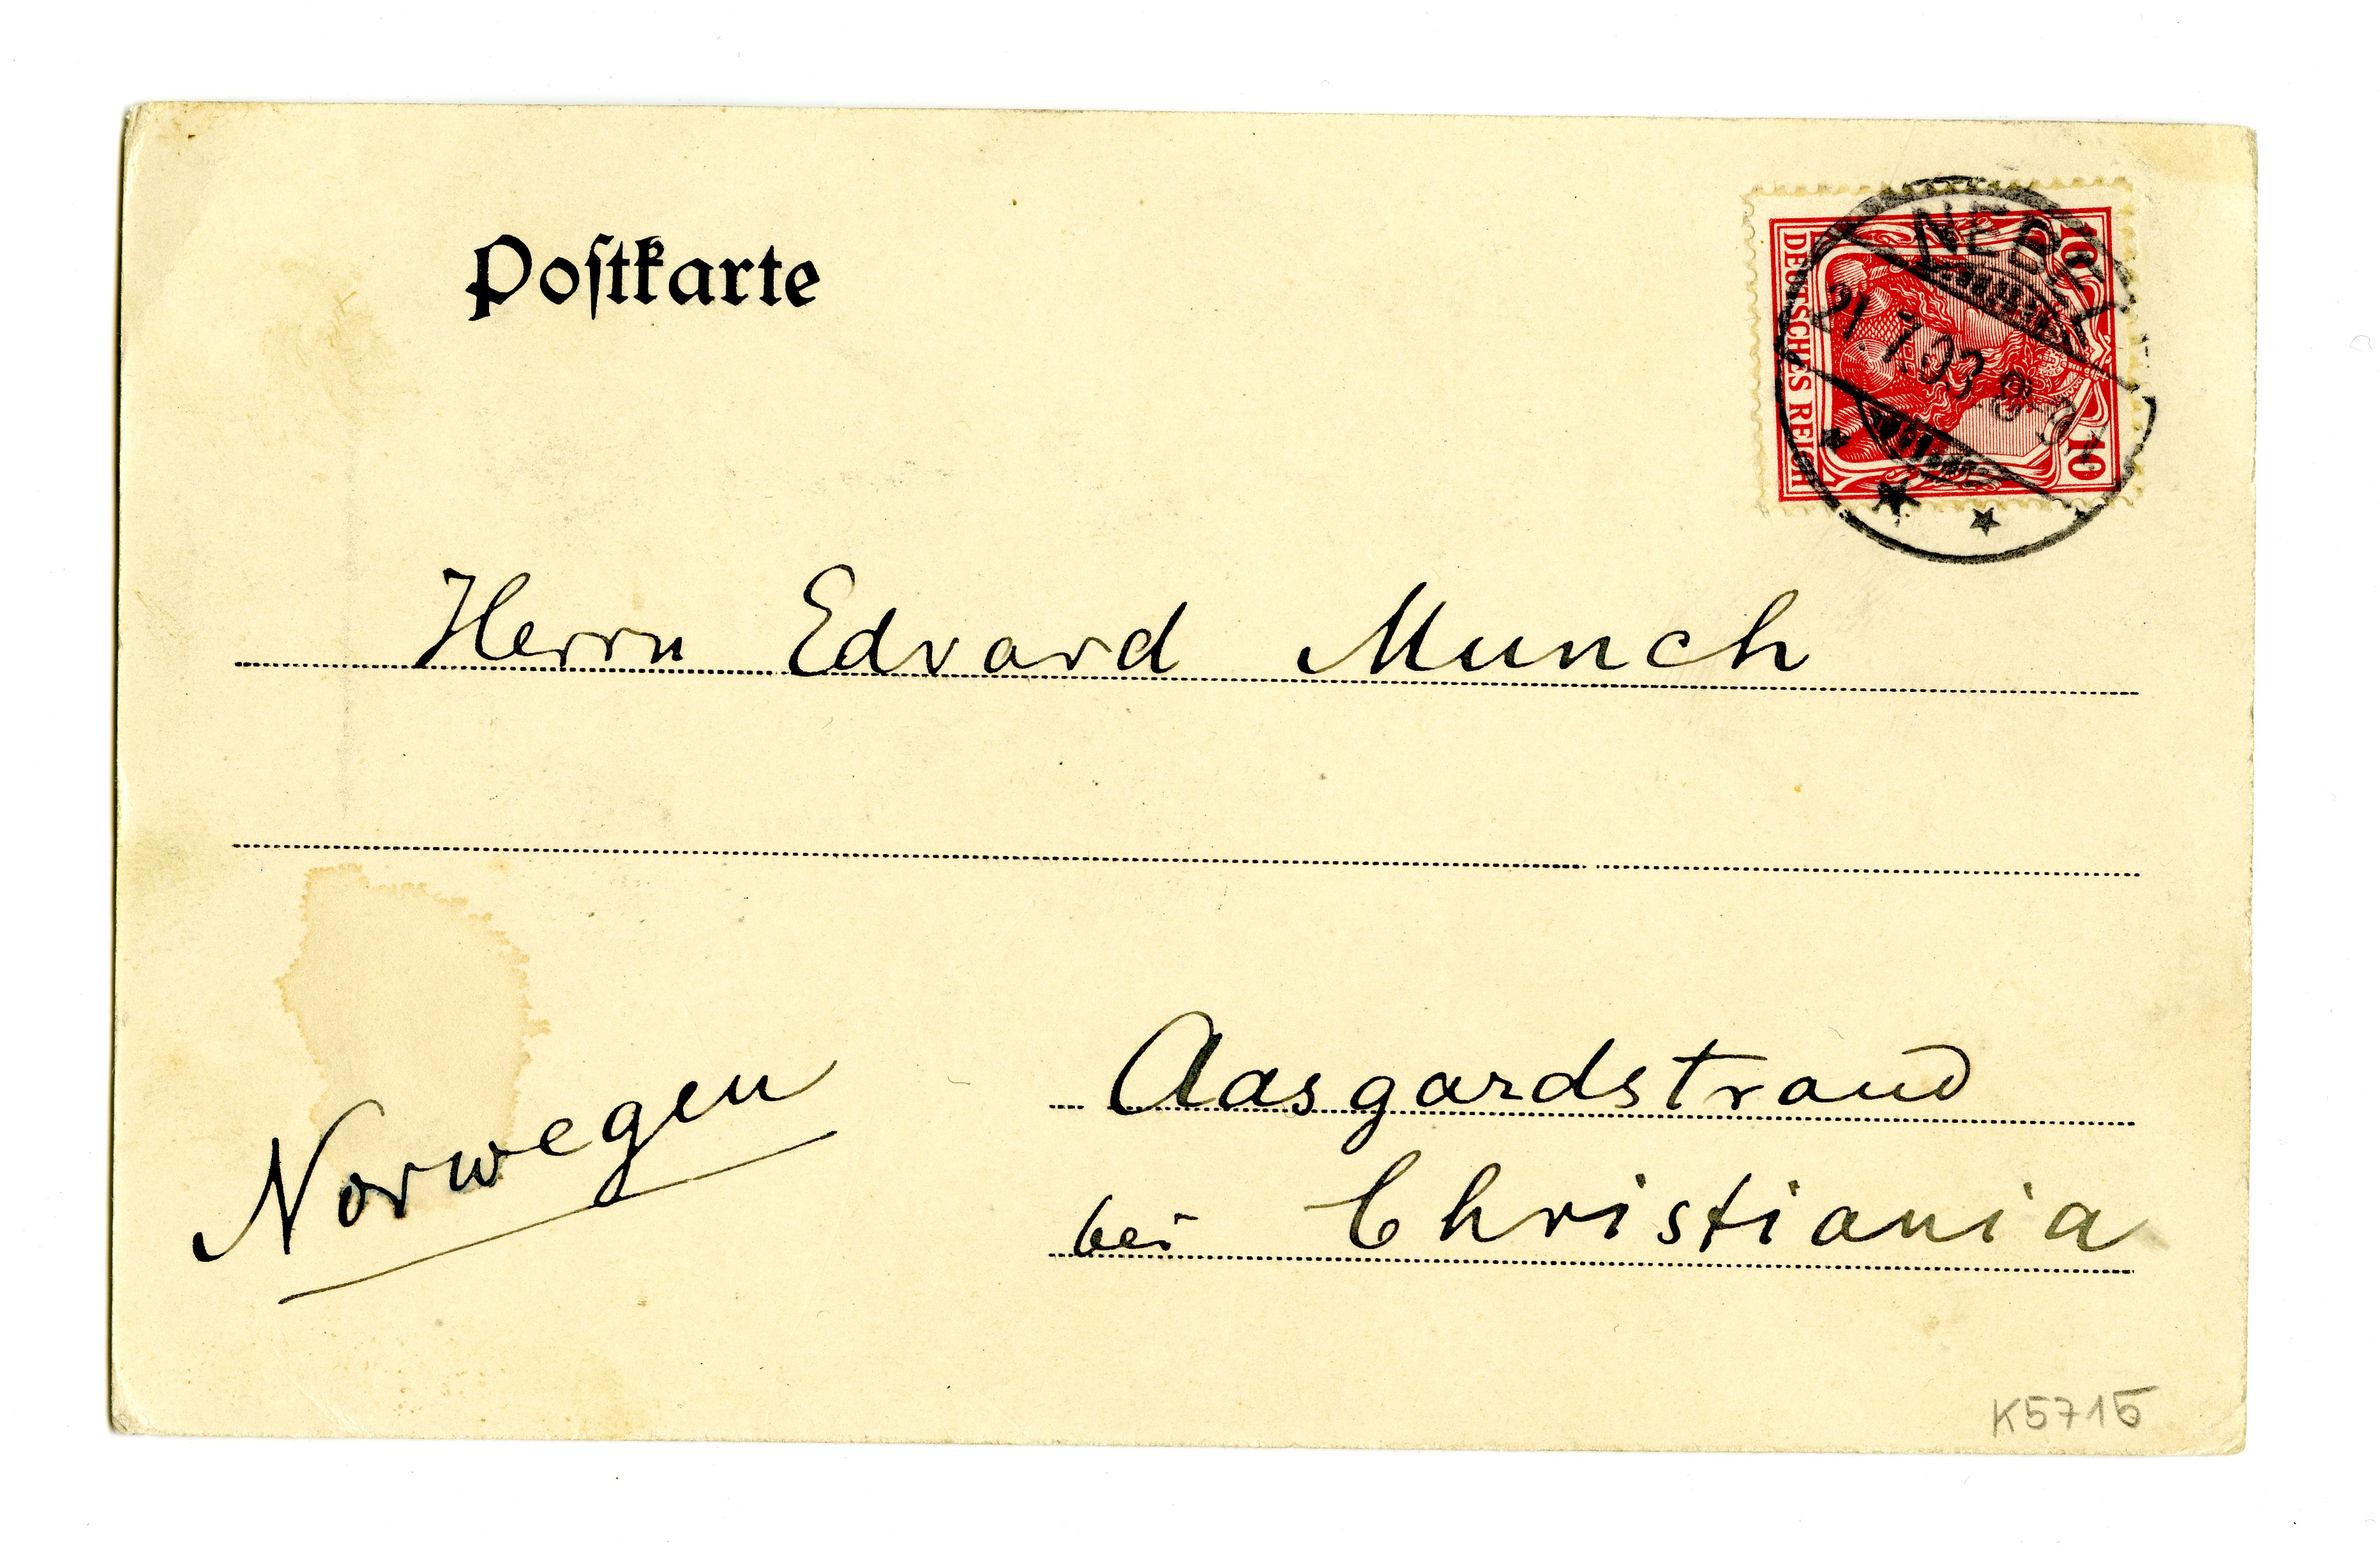 Postkarte
DEUTSCHES REICH
10 10
21.7.03 8-9N
Herrn Edvard Munch
Aasgardstrand
bei Christiania
Norwegen
K5715